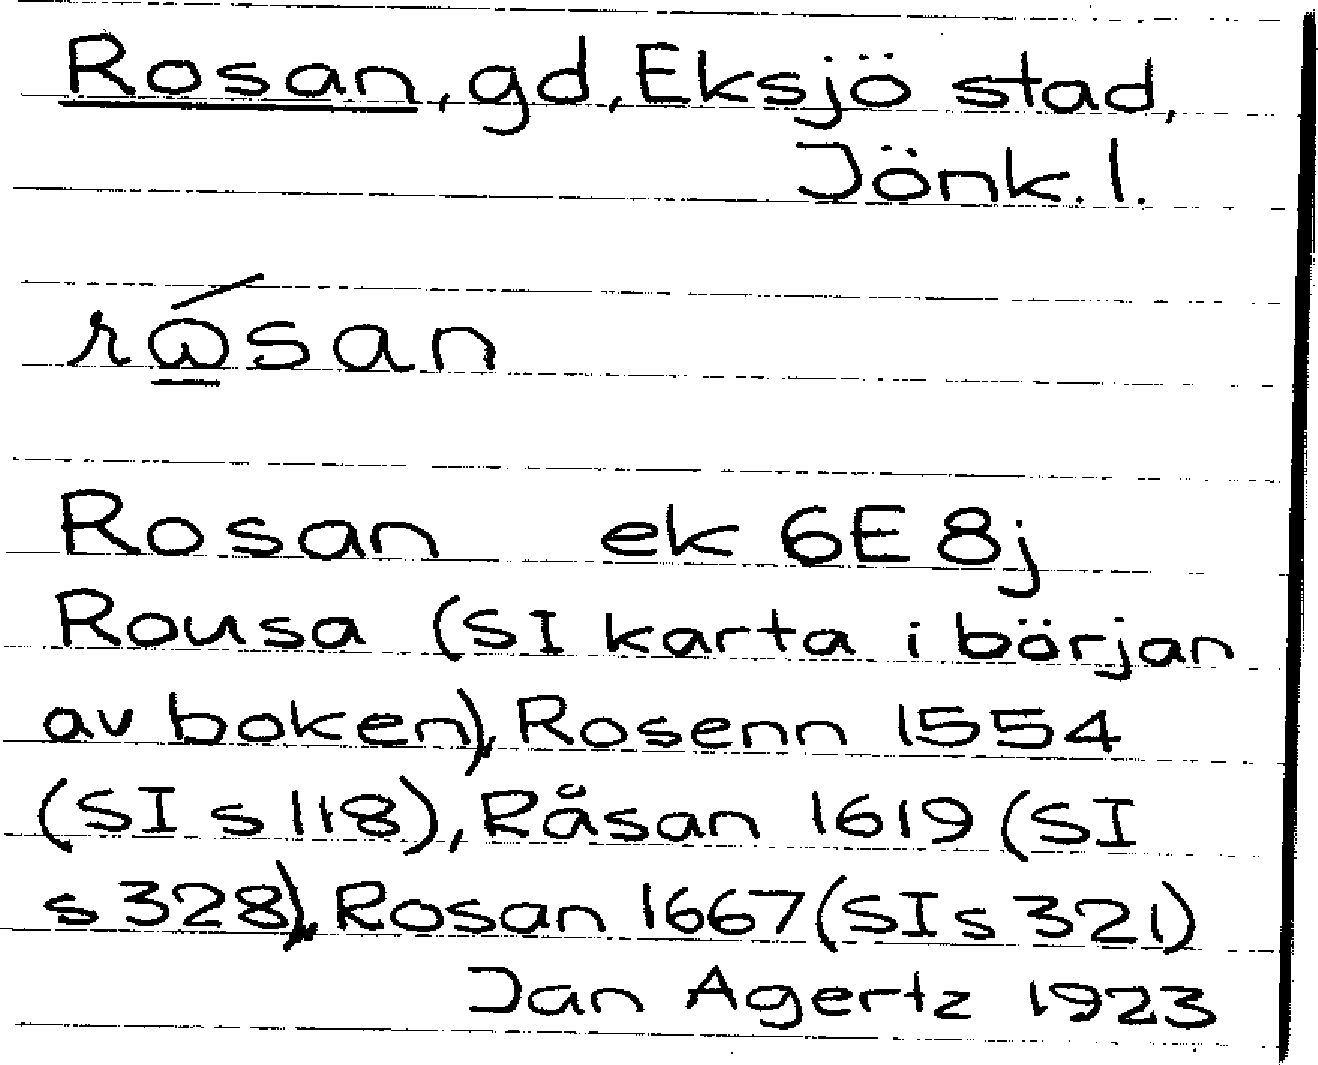 Rosan, gd, Eksjö stad,
Jönk. l.
Rosan ek 6E 8j
Rousa (SI karta i början
av boken), Rosenn 1554
(SI s 118), Råsan 1619 (SI
s 328), Rosan 1667 (SI s 321)
Jan Agertz 1923